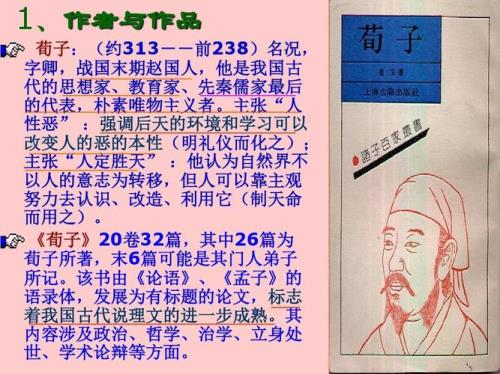 1、作者与作品
荀子：（约313－－前238）名况，
字卿，战国末期赵国人，他是我国古
代的思想家、教育家、先秦儒家最后
的代表，朴素唯物主义者。主张“人
性恶”：强调后天的环境和学习可以
改变人的恶的本性（明礼仪而化之）；
主张“人定胜天”：他认为自然界不
以人的意志为转移，但人可以靠主观
努力去认识、改造、利用它（制天命
而用之）。
《荀子》20卷32篇，其中26篇为
荀子所著，末6篇可能是其门人弟子
所记。该书由《论语》、《孟子》的
语录体，发展为有标题的论文，标志
着我国古代说理文的进一步成熟。其
内容涉及政治、哲学、治学、立身处
世、学术论辩等方面。
荀子
上海古籍出版社
諸子百家叢書